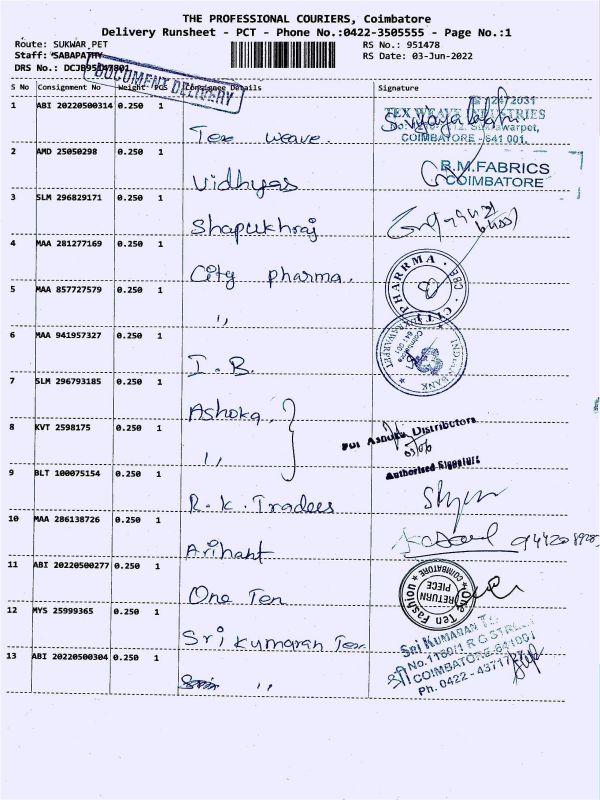 THE PROFESSIONAL COURIERS, Coimbatore
Delivery Runsheet - PCT - Phone No.:0422-3505555 - Page No.:1
Route: SUKWAR PET RS No.: 951478
Staff: SABAPATHY RS Date: 03-Jun-2022
DRS No.:
DOCUMENT DELIVERY
S No Consignment No Weight PCS Consignee Details Signature
1 ABI 20220500314 0.250 1 Tex weave
TEX WEAVE INDUSTRIES
COIMBATORE - 641 001.
2 AMD 25050298 0.250 1 Vidhyas
B.M.FABRICS
COIMBATORE
3 SLM 296829171 0.250 1 Shapukhraj
4 MAA 281277169 0.250 1 City pharma.
CITI PHARRMA CBE
5 MAA 857727579 0.250 1 ,,
6 MAA 941957327 0.250 1 I. B.
INDIAN BANK
Coimbatore
641 001
7 SLM 296793185 0.250 1 Ashoka.
8 KVT 2598175 0.250 1 ,,
For Ashoka Distributors
03/06
Authorised Signature
9 BLT 100075154 0.250 1 R. K. Traders
10 MAA 286138726 0.250 1 Arihant
11 ABI 20220500277 0.250 1 One Ten
One Ten Fashion
COIMBATORE
RETURN
PIECE
12 MYS 25999365 0.250 1 Sri Kumaran Tex
SRI KUMARAN TEX
No.1160/1 R G STREET
COIMBATORE-641001
Ph. 0422 - 43717
13 ABI 20220500304 0.250 1 ,,